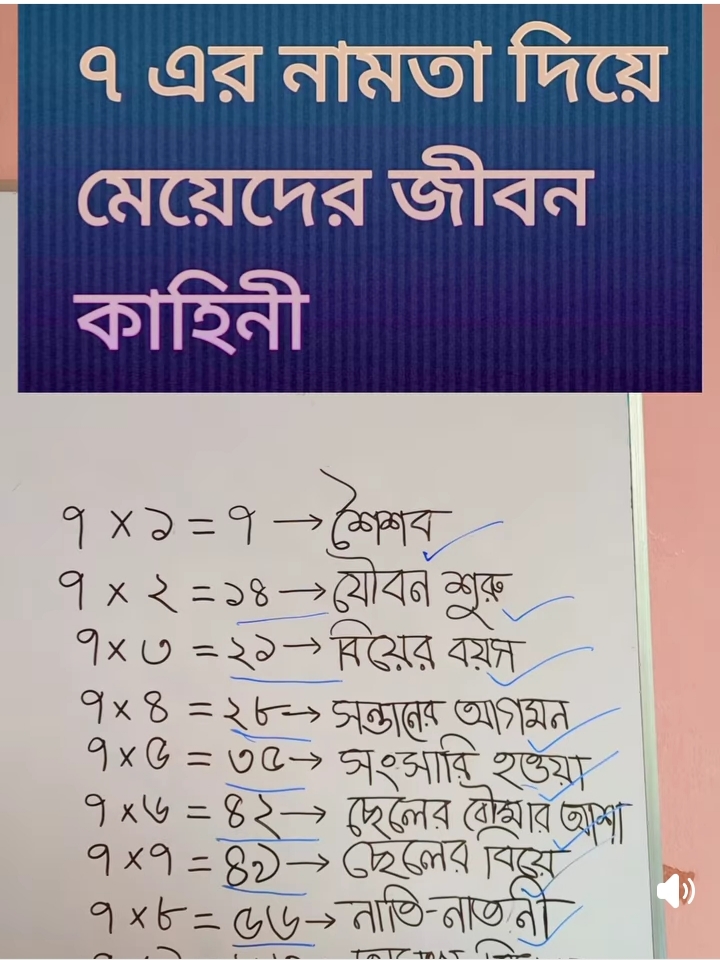 ৭ এর নামতা দিয়ে
মেয়েদের জীবন
কাহিনী
৭ × ১ = ৭ → শৈশব
৭ × ২ = ১৪ → যৌবন শুরু
৭ × ৩ = ২১ → বিয়ের বয়স
৭ × ৪ = ২৮ → সন্তানের আগমন
৭ × ৫ = ৩৫ → সংসারি হওয়া
৭ × ৬ = ৪২ → ছেলের বৌমার আশা
৭ × ৭ = ৪৯ → ছেলের বিয়ে
৭ × ৮ = ৫৬ → নাতি-নাতনী